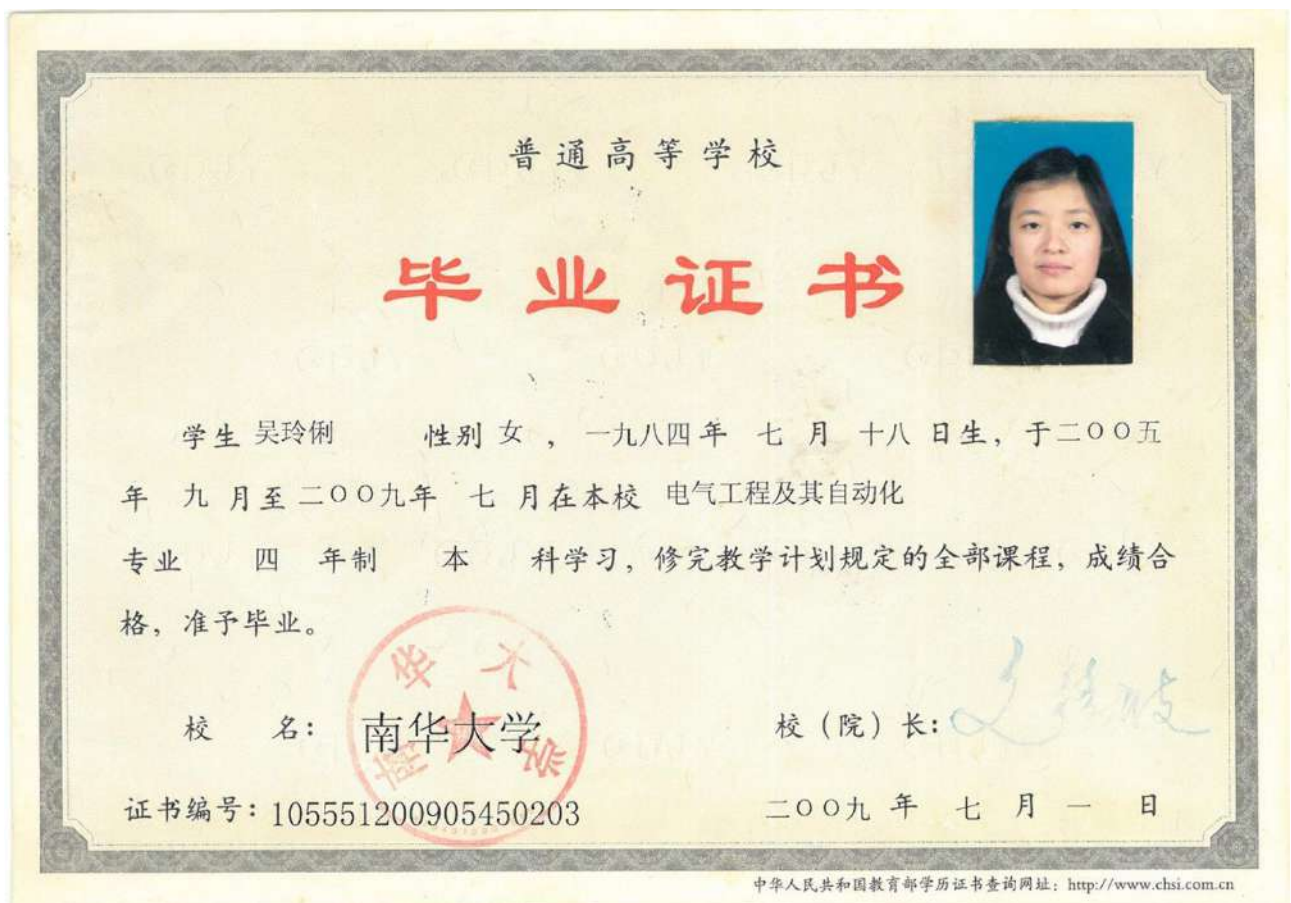 普通高等学校
毕业证书
学生 吴玲俐 性别 女 ，一九八四年 七 月 十八 日生，于二〇〇五
年 九 月至二〇〇九年 七 月在本校 电气工程及其自动化
专业 四 年制 本 科学习，修完教学计划规定的全部课程，成绩合
格，准予毕业。
校 名：南华大学
校（院）长：
南华大学
证书编号：105551200905450203
二〇〇九 年 七 月 一 日
中华人民共和国教育部学历证书查询网址：http://www.chsi.com.cn